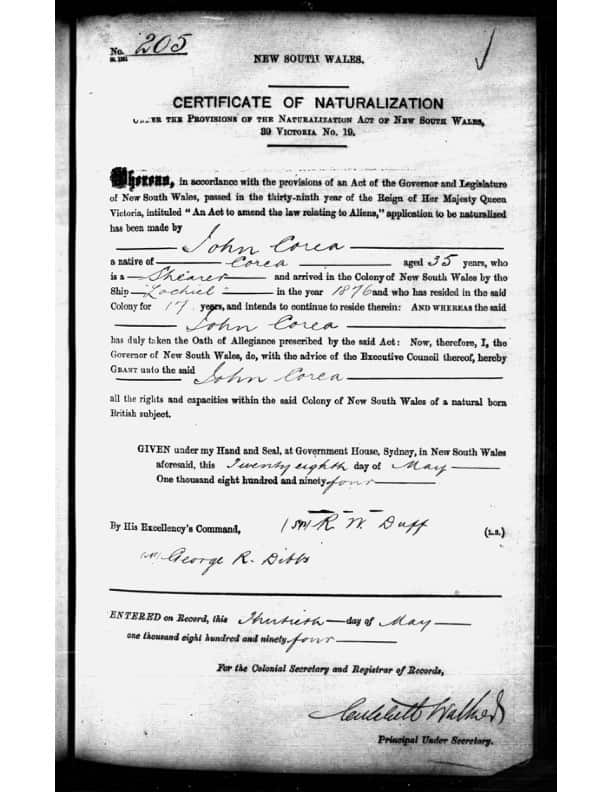 No. 205
NEW SOUTH WALES.
CERTIFICATE OF NATURALIZATION
UNDER THE PROVISIONS OF THE NATURALIZATION ACT OF NEW SOUTH WALES,
39 VICTORIA No. 19.
Whereas, in accordance with the provisions of an Act of the Governor and Legislature
of New South Wales, passed in the thirty-ninth year of the Reign of Her Majesty Queen
Victoria, intituled "An Act to amend the law relating to Aliens," application to be naturalized
has been made by
John Corea
a native of Corea aged 35 years, who
is a Shearer and arrived in the Colony of New South Wales by the
Ship "Lochiel" in the year 1876 and who has resided in the said
Colony for 17 years, and intends to continue to reside therein: AND WHEREAS the said
John Corea
has duly taken the Oath of Allegiance prescribed by the said Act: Now, therefore, I, the
Governor of New South Wales, do, with the advice of the Executive Council thereof, hereby
GRANT unto the said John Corea
all the rights and capacities within the said Colony of New South Wales of a natural born
British subject.
GIVEN under my Hand and Seal, at Government House, Sydney, in New South Wales
aforesaid, this Twenty eighth day of May
One thousand eight hundred and ninety four
By His Excellency's Command, R. W. Duff (L.S.)
George R. Dibbs
ENTERED on Record, this Thirtieth day of May
one thousand eight hundred and ninety four
For the Colonial Secretary and Registrar of Records,
Critchett Walker
Principal Under Secretary.